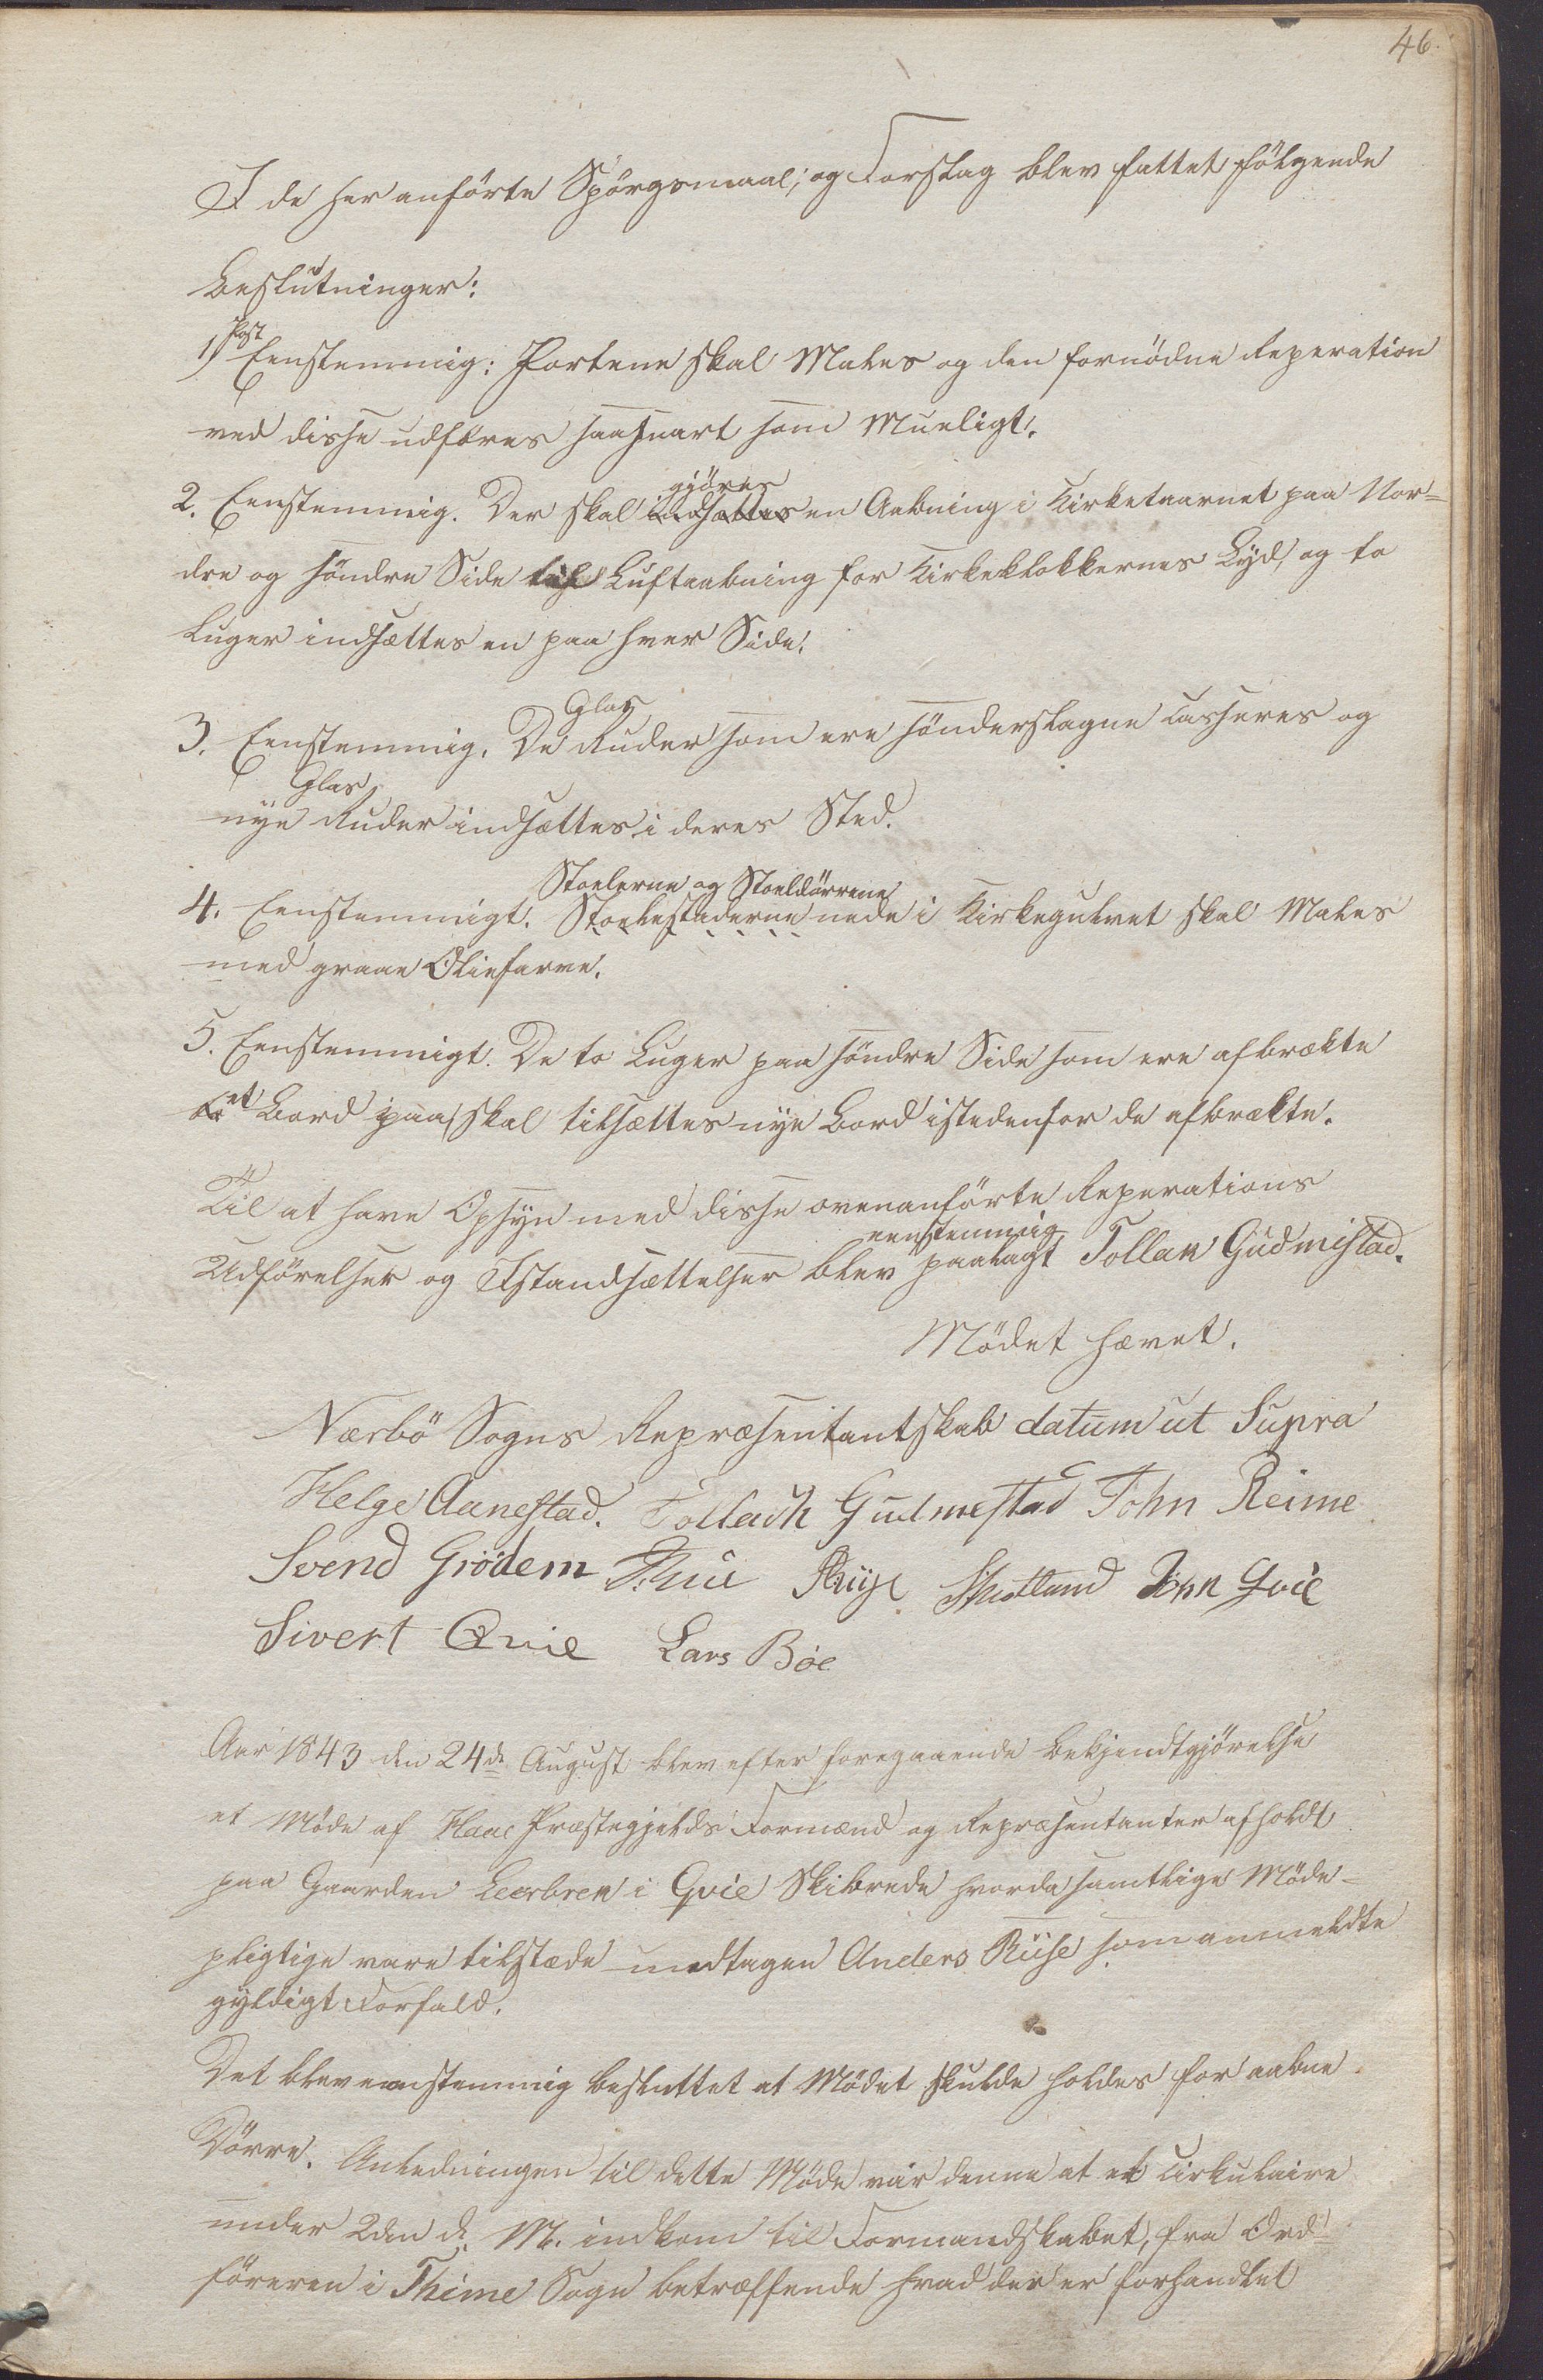 46.
I de her anförte Spörgsmaal; og Forslag blev fattet fölgende
Beslutninger:
1) Post Eenstemmig: Portene skal Males og den fornödne Reperation
ved disse udföres saasnart som Mueligt.
2. Eenstemmig. Der skal indsættes gjöres en Aabning i Kirketaarnet paa Nor=
dre og söndre Side til Luftaabning for Kirkeklokkernes Lyd, og to
Luger indsættes en paa hver Side.
3. Eenstemmig. De Glas Ruder som ere sönderslagne Casseres og
nye Glas Ruder indsættes i deres Sted.
Stoelerne og Stoeldörrene
4. Eenstemmigt. Stoelestaderne nede i Kirkegulvet skal Males
med graae Oliefarve.
5. Eenstemmigt. De to Luger paa söndre Side som ere afbrækte
et Bord paa, skal tilsættes nye Bord istedenfor de afbrækte.
Til at have Opsyn med disse ovenanförte Reperations
Udförelser og Istandsættelser blev eenstemmig paalagt Tollak Gudmestad.
Mödet hævet.
Nærbö Sogns Repræsentantskab datum ut Supra
Helge Aanestad. Tollach Gudmestad John Reime
Svend Grödem Thui Riise Skotland John Qvie
Sivert Qvie Lars Böe
Aar 1843 den 24de August blev efter foregaaende bekjendtgjörelse
et Möde af Haae Præstegjelds Formænd og Repræsentanter afholdt
paa Gaarden Leerbrek i Qvie Skibrede hvorda samtlige Möde-
pligtige vare tilstæde undtagen Anders Riise som anmeldte
gyldigt Forfald.
Det blev eenstemmig besluttet at Mödet skulde holdes for aabne
Dörre. Anledningen til dette Möde var denne at et Cirkulaire
under 2den d. M. indkom til Formandskabet, fra Ord-
föreren i Thime Sogn betræffende hvad der er forhandlet